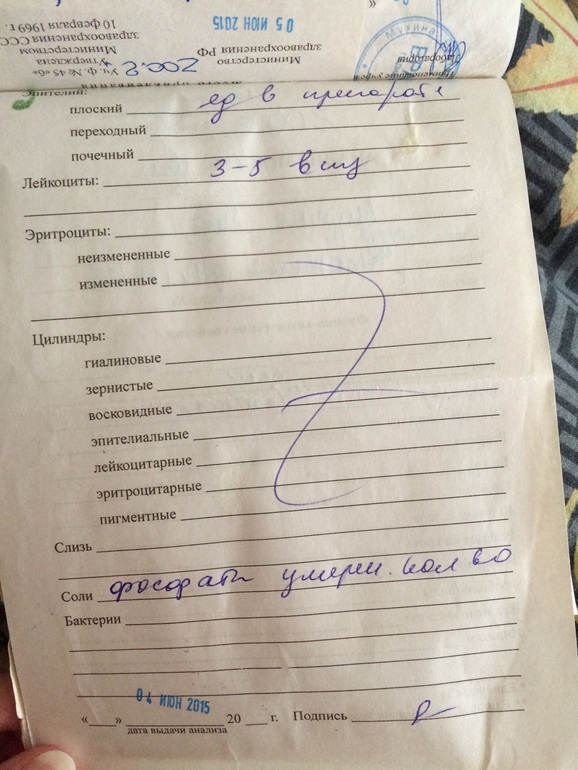 10 февраля 1969 г.
здравоохранения ССС
Министерством
Утверждена
Уч. Ф. № 45 «о»
2002
05 ИЮН 2015
здравоохранения РФ
Министерство
по
Мухина
Наименование учреж
Лаборатория
Эпителий:
плоский ед в препарате
переходный
почечный
Лейкоциты: 3-5 в п/з
Эритроциты:
неизмененные
измененные
Цилиндры:
гиалиновые
зернистые
восковидные
эпителиальные
лейкоцитарные
эритроцитарные
пигментные
Слизь
Соли фосфаты умерен. кол во
Бактерии
04 ИЮН 2015
«___» 20 г. Подпись
дата выдачи анализа